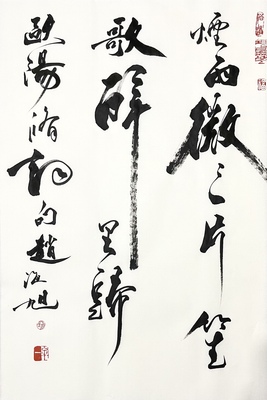 煙雨微々一片笙
歌醉里歸
歐陽脩詞句趙旭